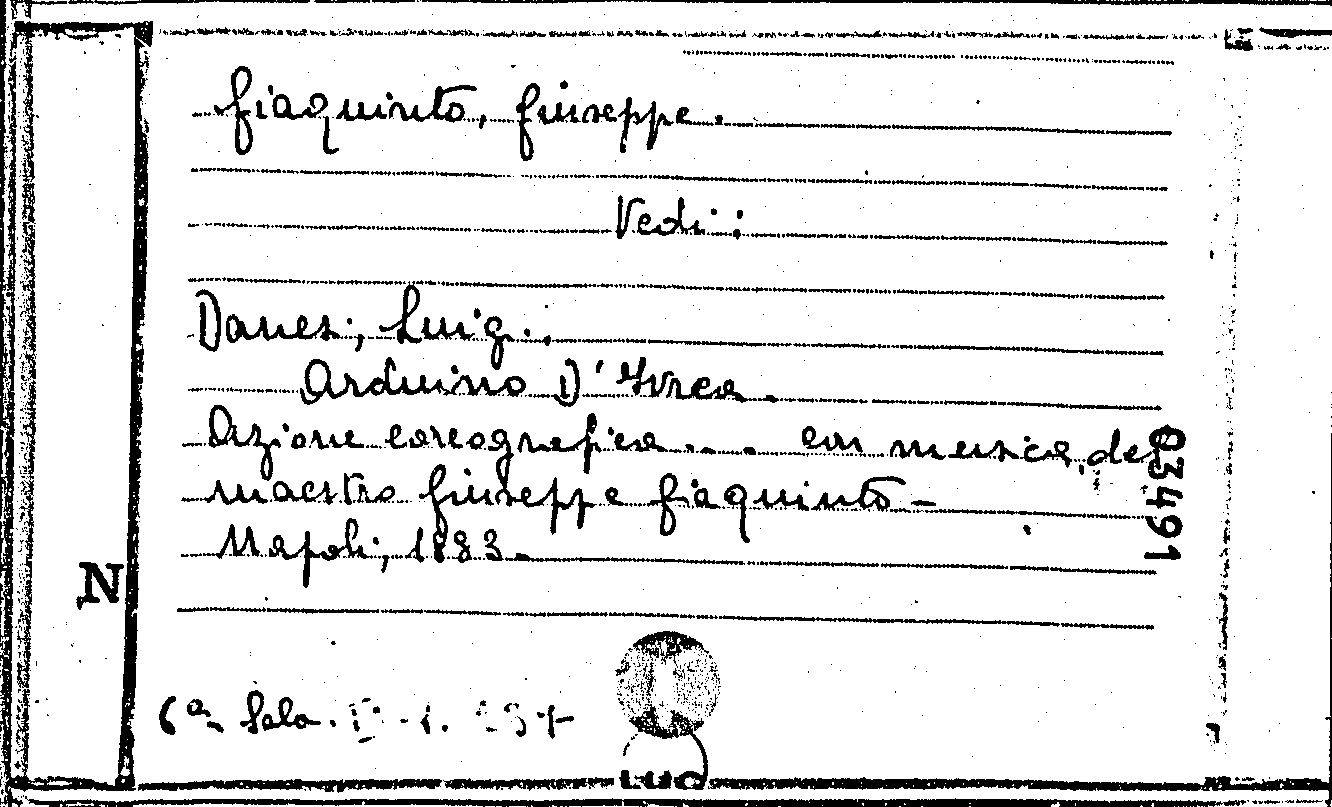 Giaquinto, Giuseppe.
Vedi:
Danesi, Luigi.
Arduino D'Ivrea.
Azione coreografica... con musica del
maestro Giuseppe Giaquinto -
Napoli, 1883.
034491
N
6ª Sala.
LUC